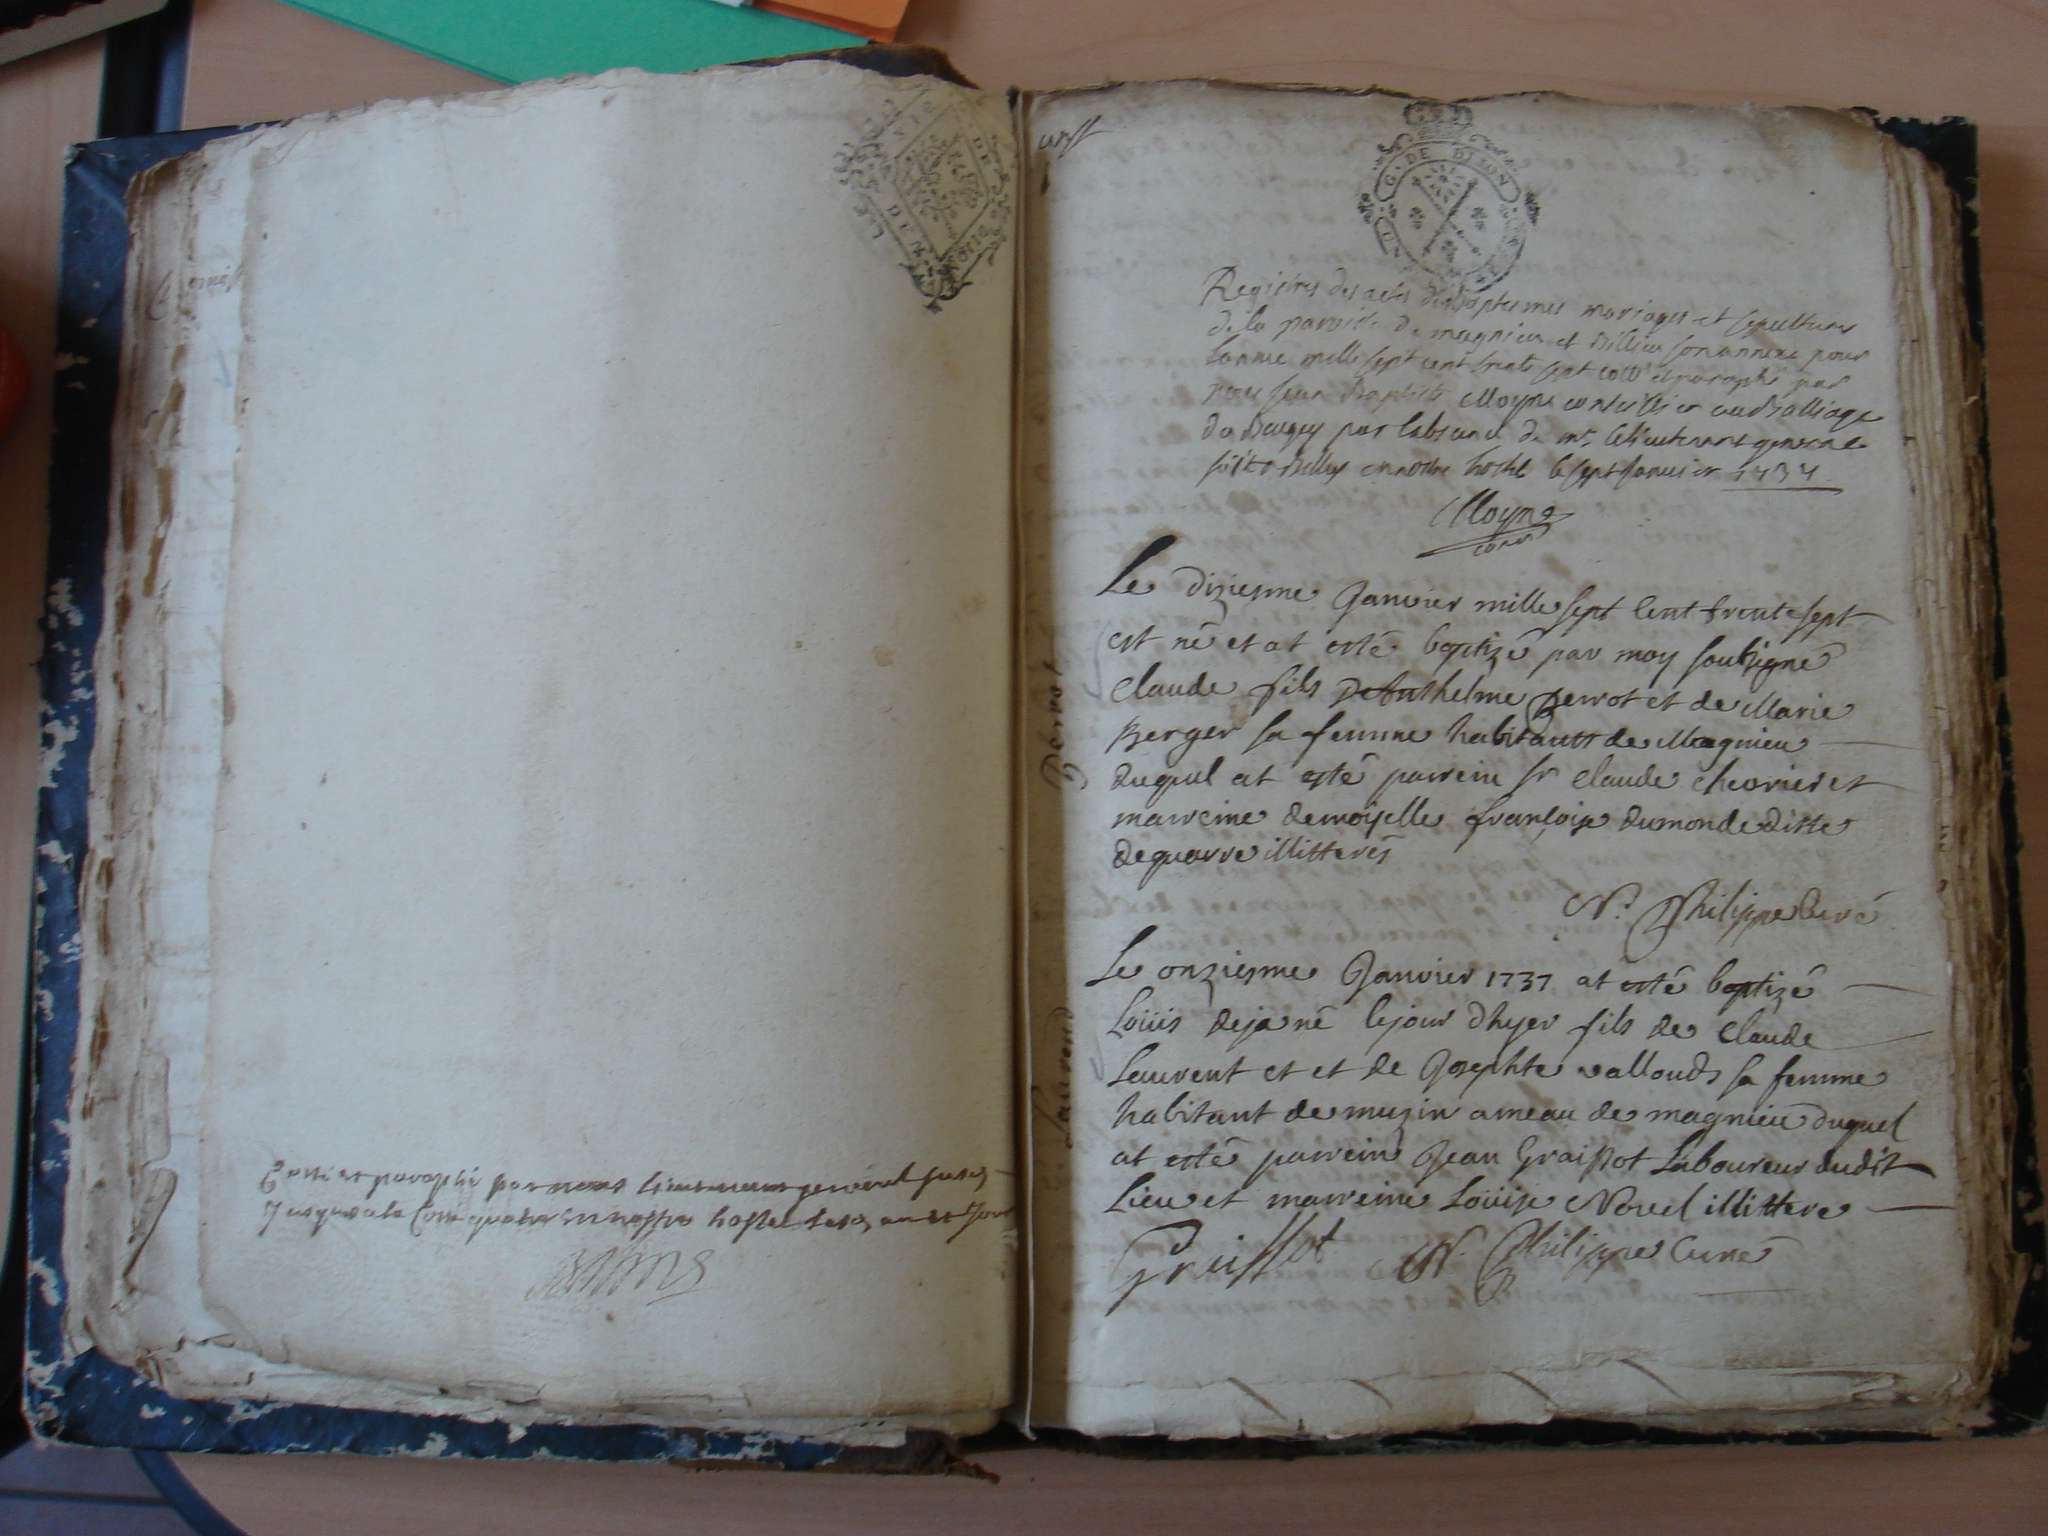 Cotté et paraphé par nous Lieutenant general
G. DE DIJON
Registres des actes de baptesmes mariages et sepultures
de la paroisse de magnieu et Billieu son annexe pour
lannee mille sept cent trente sept cotté et paraphé par
nous Jean Baptiste Moyne conseillier au Balliage
de Beugey par labsence de mr. le lieutenant general
fait à Belley en nostre hostel le sept Janvier 1737
Moyne
cons
Perrot
Le diziesme Janvier mille sept Cent trente sept
est né et at esté baptizé par moy soubsigné
Claude fils De Anthelme Perrot et de Marie
Berger sa femme habitants de Magnieu
duquel at esté parrein sr Claude Chevrier et
marreine demoiselle francoise dumonde ditte
dequarre illitterés
N. Philippe Curé
Laurent
Le onziesme Janvier 1737 at esté baptizé
Loüis deja né le jour dhyer fils de Claude
Laurent et et de Josephte vallouds sa femme
habitant de muzin ameau de magnieu duquel
at esté parrein Jean Graissot Laboureur dudit
Lieu et marreine Loüise Novel illittere
Graissot N. Philippe Curé